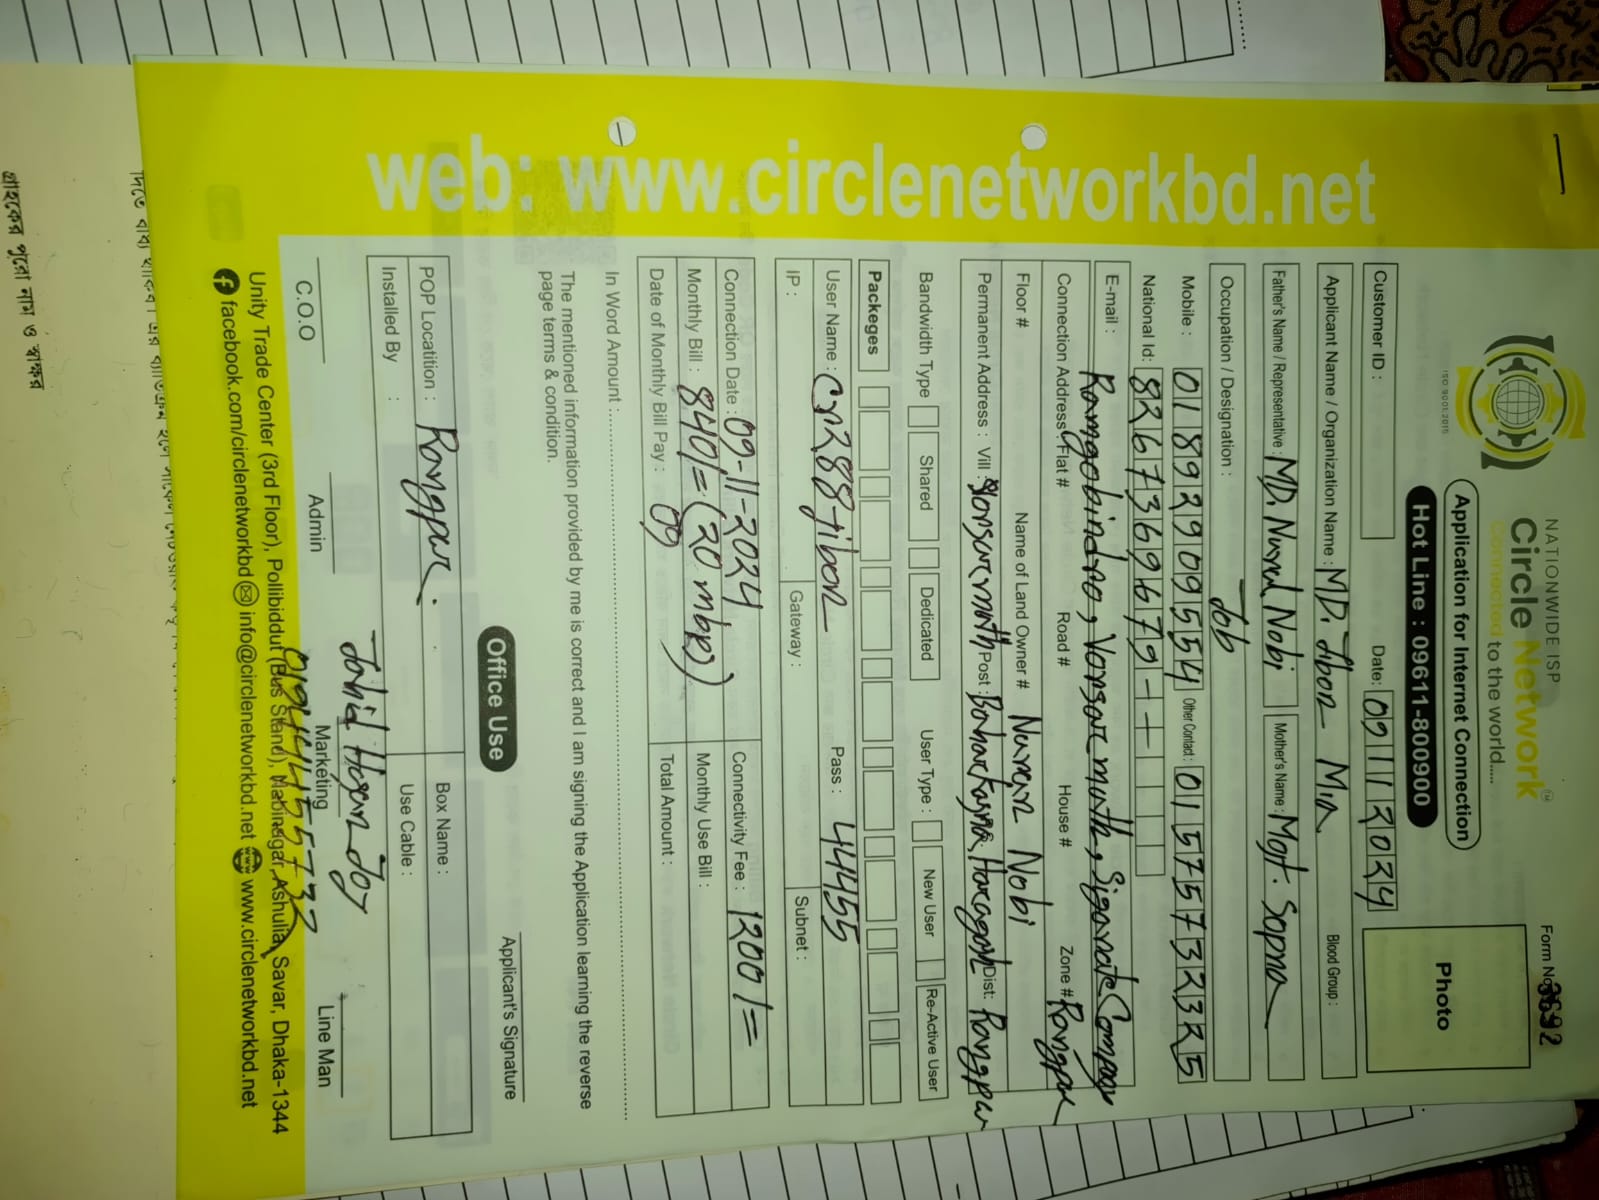 Form No. 3692
NATIONWIDE ISP
Circle Network
Connected to the world....
ISO 9001:2015
Application for Internet Connection
Hot Line : 09611-800900
Photo
Customer ID :
Date: 09 11 2024
Applicant Name / Organization Name : MD. Jibon Mia
Blood Group :
Father's Name / Representative : MD. Nurul Nobi
Mother's Name : Mst. Sopna
Occupation / Designation : Job
Mobile : 01892909554 Other Contact : 01575732325
National Id: 8267369679
E-mail : Ramgobindro, Vonsarmath, Sigarate Company
Connection Address : Flat # Road # House # Zone # Rangpur
Floor # Name of Land Owner # Nuren Nobi
Permanent Address : Vill : Post : Dist: Rangpur
Bandwidth Type Shared Dedicated User Type : New User Re-Active User
Packeges
User Name : cn288jibon Pass : 44455
IP : Gateway : Subnet :
Connection Date : 09-11-2024 Connectivity Fee : 1200/=
Monthly Bill : 840/= (20 mbps) Monthly Use Bill :
Date of Monthly Bill Pay : 09 Total Amount :
In Word Amount :
The mentioned information provided by me is correct and I am signing the Application learning the reverse
page terms & condition.
Applicant's Signature
Office Use
POP Locatition : Rangpur. Box Name :
Installed By : Use Cable :
Jahid Hasan Joy
01944455732
C.O.O Admin Marketing Line Man
Unity Trade Center (3rd Floor), Pollibiddut (Bus Stand), Nabinagar, Ashulia, Savar, Dhaka-1344
facebook.com/circlenetworkbd info@circlenetworkbd.net www.circlenetworkbd.net
web: www.circlenetworkbd.net
গ্রাহকের পুরো নাম ও স্বাক্ষর